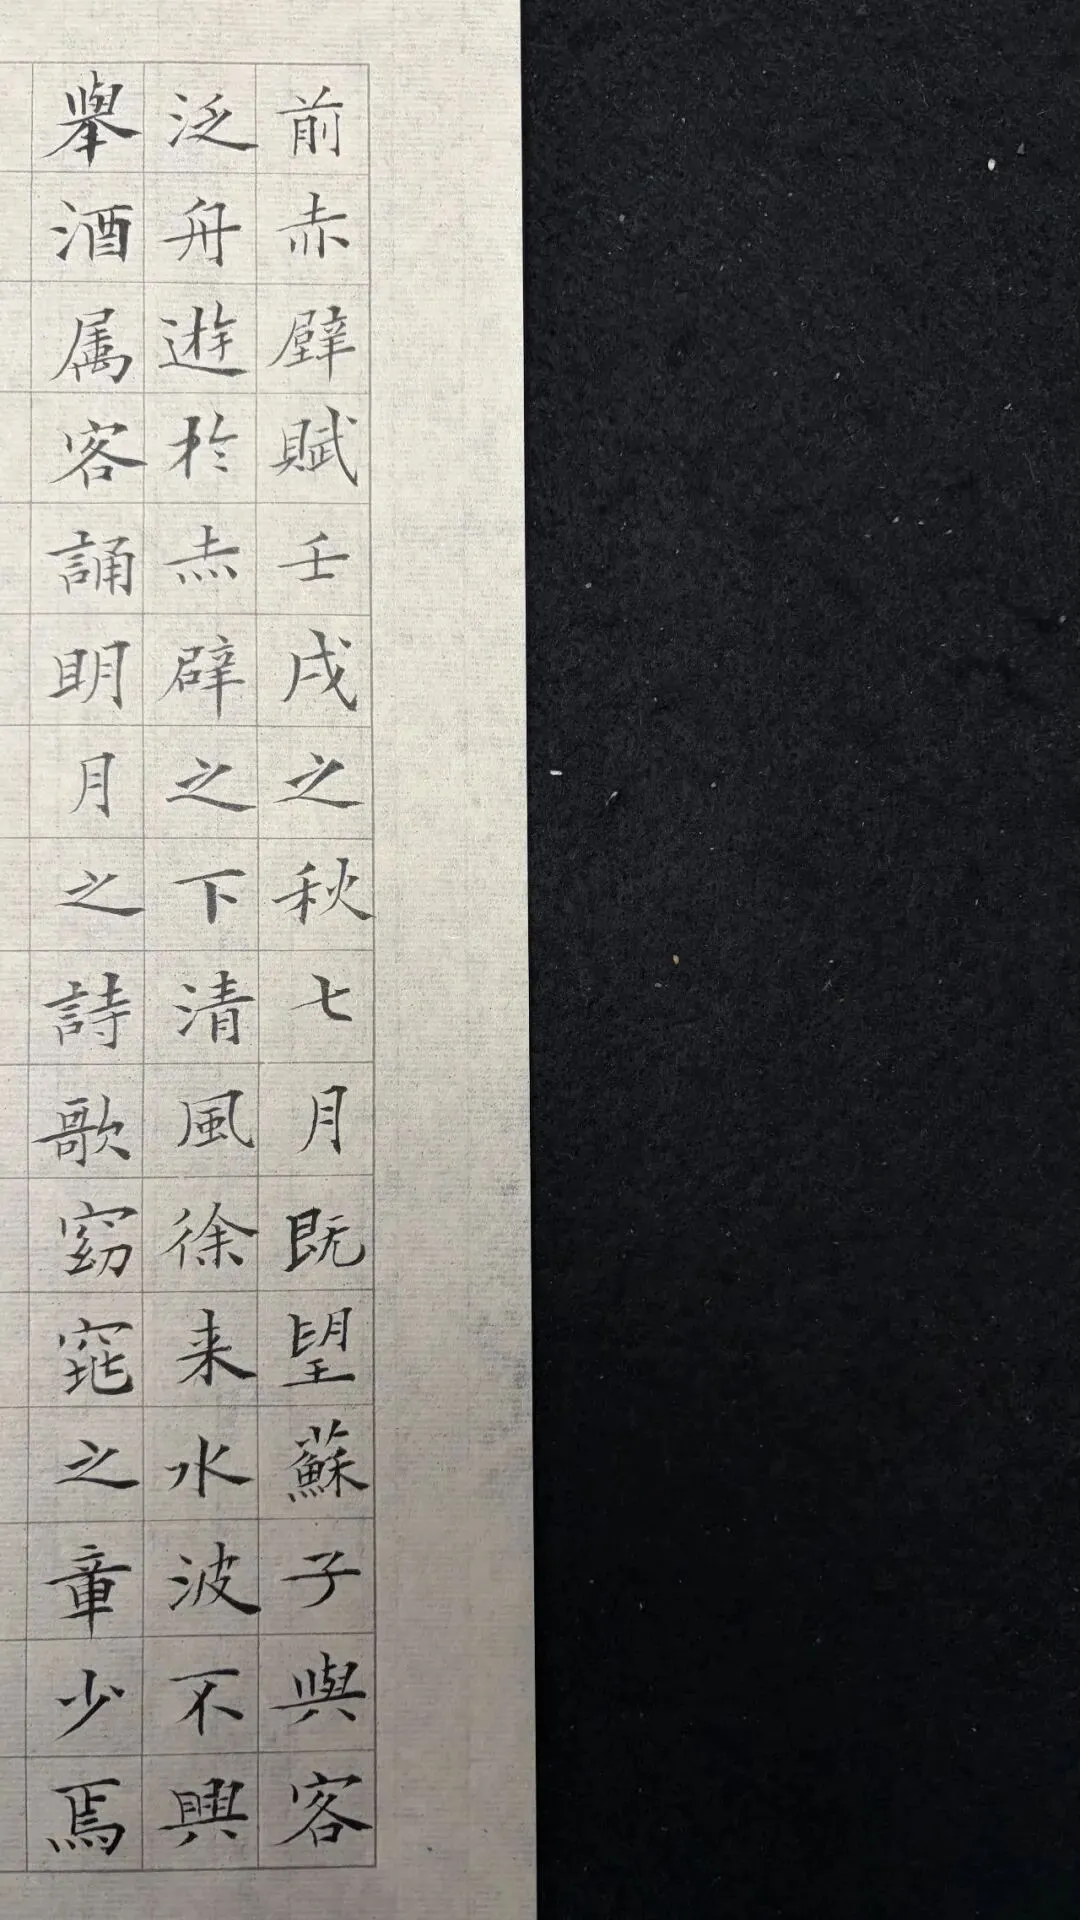 前赤壁賦壬戌之秋七月既望蘇子與客
泛舟遊於赤壁之下清風徐来水波不興
舉酒属客誦明月之詩歌窈窕之章少焉